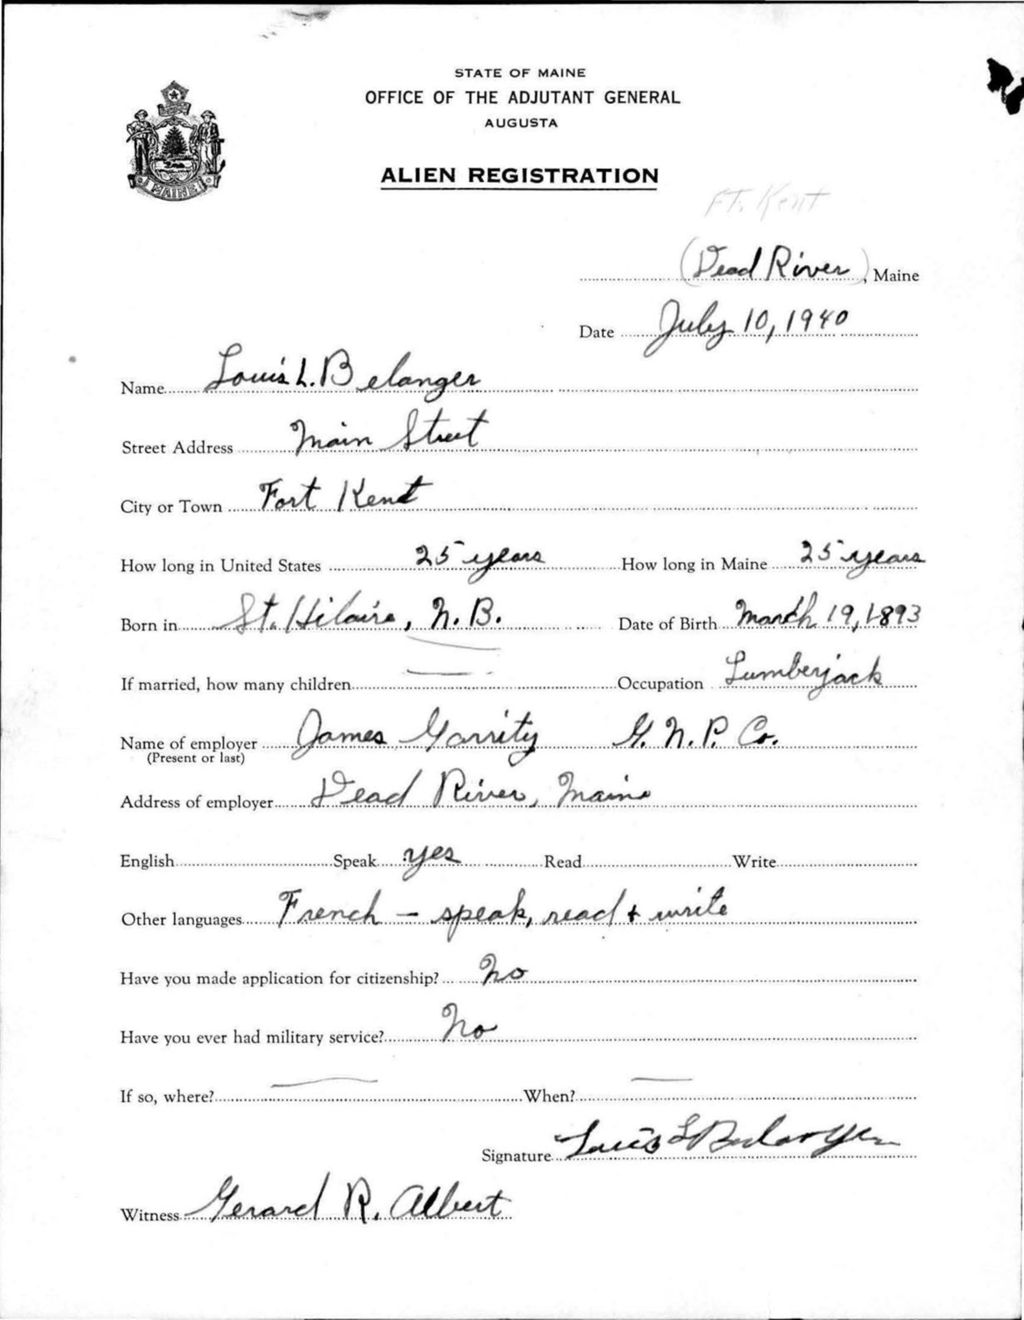 STATE OF MAINE
OFFICE OF THE ADJUTANT GENERAL
AUGUSTA
ALIEN REGISTRATION
MAINE
Ft. Kent
(Dead River), Maine
Date July 10, 1940
Name Louis L. Belanger
Street Address Main Street
City or Town Fort Kent
How long in United States 25 years How long in Maine 25 years
Born in St. Hilaire, N.B. Date of Birth March 19, 1893
If married, how many children — Occupation Lumberjack
Name of employer James Garrity G.N.P. Co.
(Present or last)
Address of employer Dead River, Maine
English Speak yes Read Write
Other languages French – speak, read + write
Have you made application for citizenship? No
Have you ever had military service? No
If so, where? — When? —
Signature Louis L Belanger
Witness Gerard R. Albert